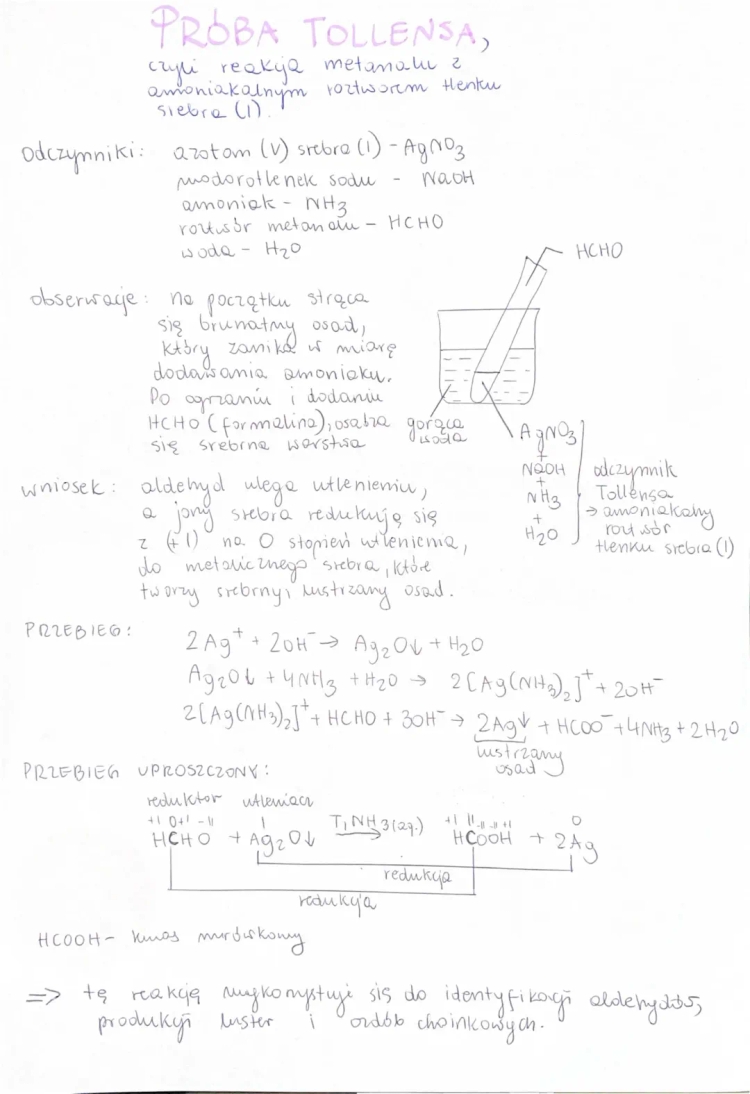 PRÓBA TOLLENSA,
czyli reakcja metanalu z
amoniakalnym roztworem tlenku
srebra (I).
Odczynniki: azotan (V) srebra (I) - AgNO₃
wodorotlenek sodu - NaOH
amoniak - NH₃
roztwór metanalu - HCHO
woda - H₂O
HCHO
obserwacje: na początku strąca
się brunatny osad,
który zanika w miarę
dodawania amoniaku.
Po ogrzaniu i dodaniu
HCHO (formalina), osadza
się srebrna warstwa
gorąca
woda
AgNO₃
+
NaOH
+
NH₃
+
H₂O
odczynnik
Tollensa
→ amoniakalny
roztwór
tlenku srebra (I)
wniosek: aldehyd ulega utlenieniu,
a jony srebra redukują się
z (+1) na 0 stopień utlenienia,
do metalicznego srebra, które
tworzy srebrny, lustrzany osad.
PRZEBIEG:
2Ag⁺ + 2OH⁻ → Ag₂O↓ + H₂O
Ag₂O↓ + 4NH₃ + H₂O → 2[Ag(NH₃)₂]⁺ + 2OH⁻
2[Ag(NH₃)₂]⁺ + HCHO + 3OH⁻ → 2Ag↓ + HCOO⁻ + 4NH₃ + 2H₂O
lustrzany
osad
PRZEBIEG UPROSZCZONY:
reduktor utleniacz
+I 0 +I -II I +I II -II -II +I 0
HCHO + Ag₂O↓ T, NH₃(aq.) → HCOOH + 2Ag
redukcja
redukcja
HCOOH - kwas mrówkowy
=> tę reakcję wykorzystuje się do identyfikacji aldehydów,
produkcji luster i ozdób choinkowych.